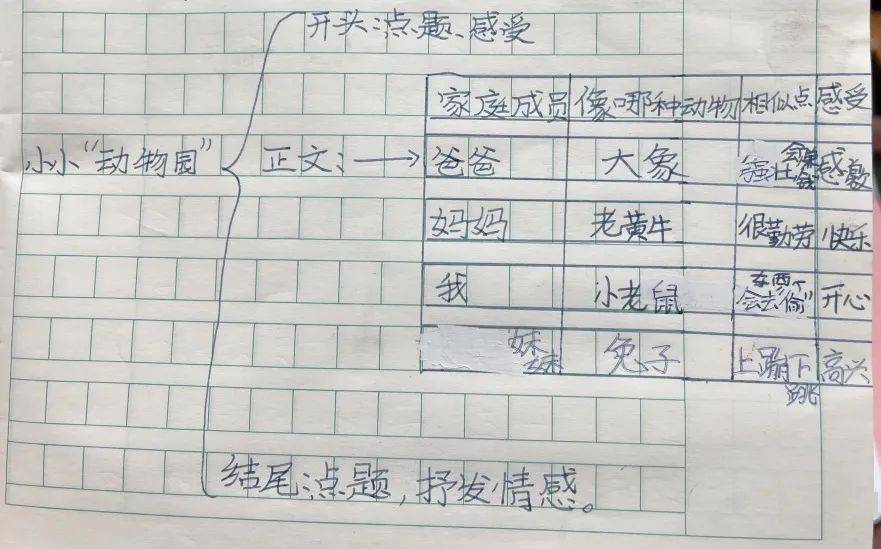 开头:点题、感受
家庭成员 像哪种动物 相似点 感受
小小“动物园” 正文: → 爸爸 大象 强壮会赚钱 感激
妈妈 老黄牛 很勤劳 快乐
我 小老鼠 会去“偷”东西 开心
妹妹 兔子 上蹦下跳 高兴
结尾:点题,抒发情感。